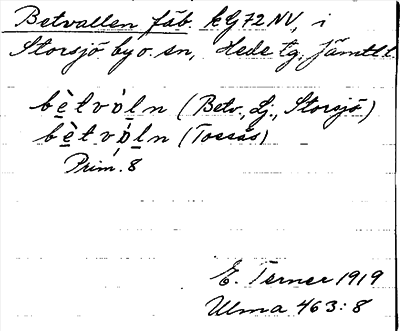 Betvallen fäb. kG72NV, i
Storsjö by o. sn, Hede tg. Jämtl. l.
bètvò̩ln (Betv., Lj., Storsjö)
bètvò̩ln (Tossås)
Prim. 8
E. Terner 1919
Ulma 463:8